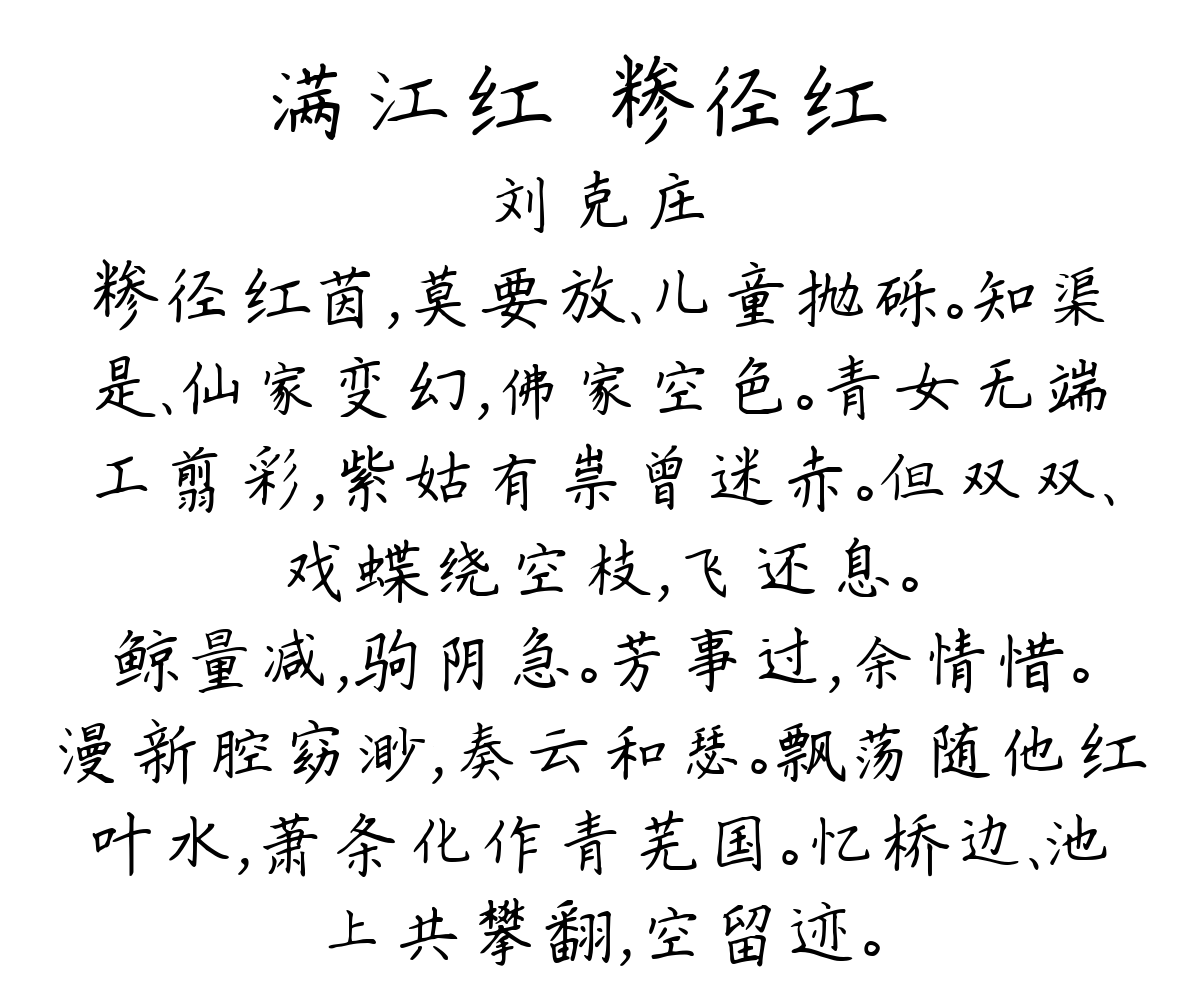 满江红 糁径红
刘克庄
糁径红茵,莫要放、儿童抛砾。知渠
是、仙家变幻,佛家空色。青女无端
工翦彩,紫姑有祟曾迷赤。但双双、
戏蝶绕空枝,飞还息。
鲸量减,驹阴急。芳事过,余情惜。
漫新腔窈渺,奏云和瑟。飘荡随他红
叶水,萧条化作青芜国。忆桥边、池
上共攀翻,空留迹。